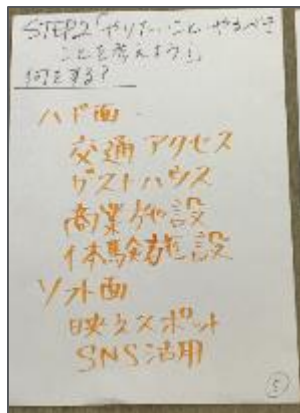 STEP2「やりたいこと・やるべき
ことを考えよう!」
何をする?
ハード面
交通アクセス
ゲストハウス
商業施設
体験施設
ソフト面
映えスポット
SNS活用
5